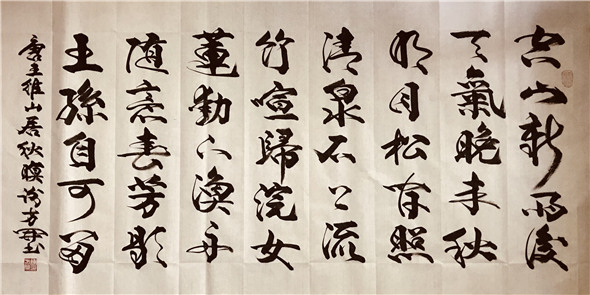 空山新雨後
天氣晚来秋
明月松間照
清泉石上流
竹喧歸浣女
蓮動下漁舟
随意春芳歇
王孫自可留
唐王維山居秋暝